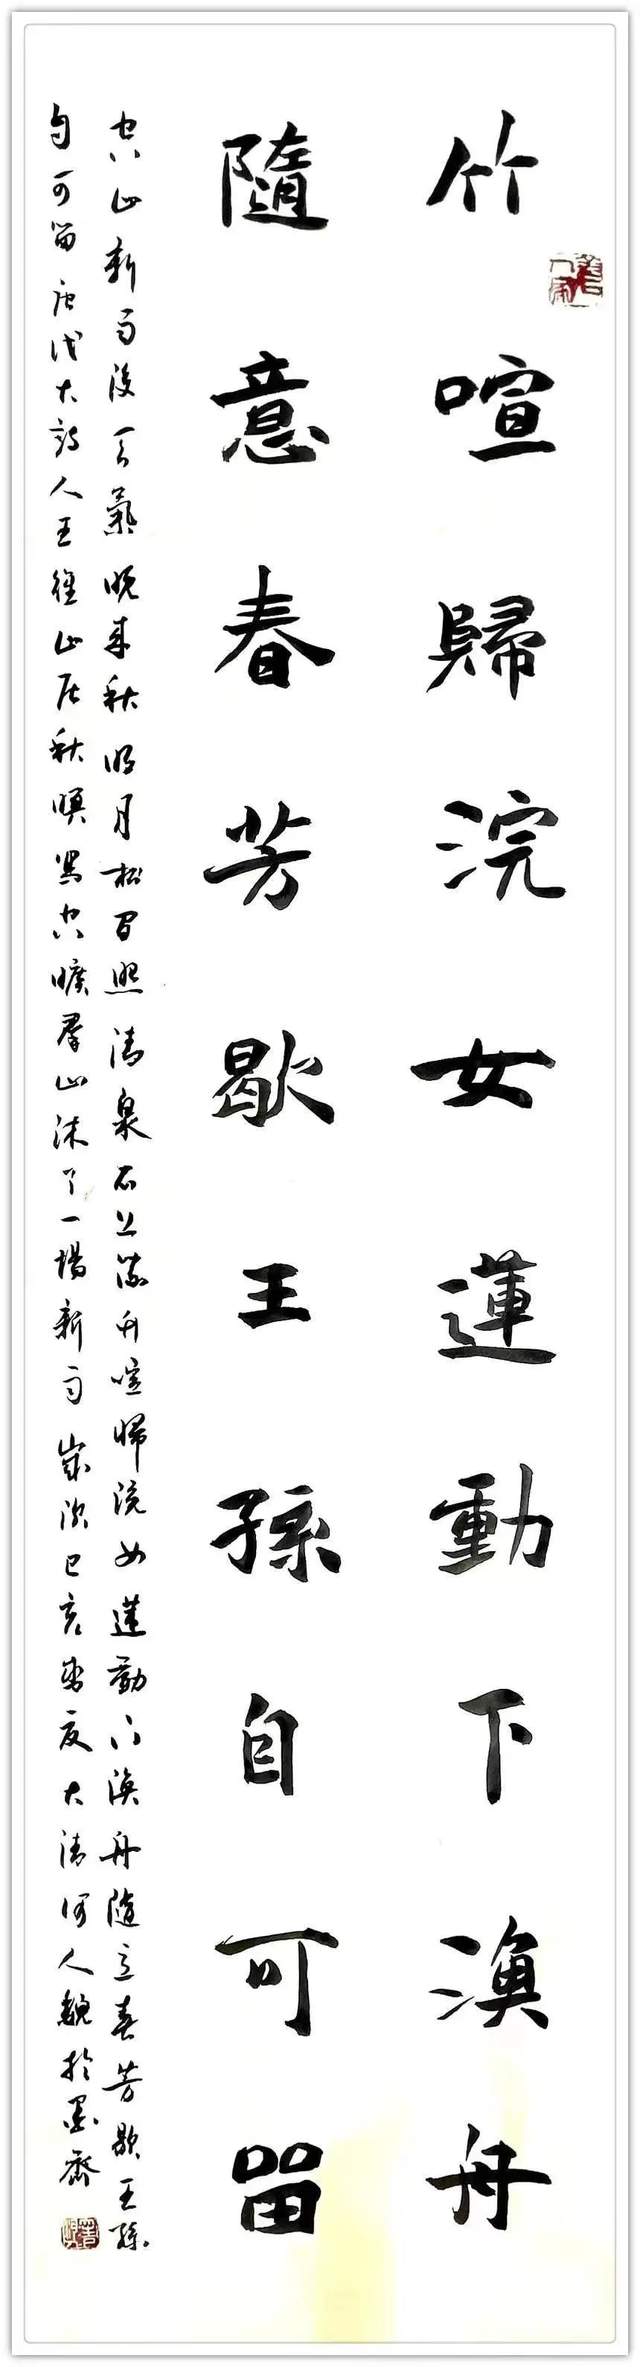 竹喧歸浣女蓮動下漁舟
隨意春芳歇王孫自可留
空山新雨後天氣晚來秋明月松間照清泉石上流竹喧歸浣女蓮動下漁舟隨意春芳歇王孫
自可留唐代大詩人王維山居秋暝寫空曠羣山沐了一場新雨歲次己亥夏大清河人魏於墨齋